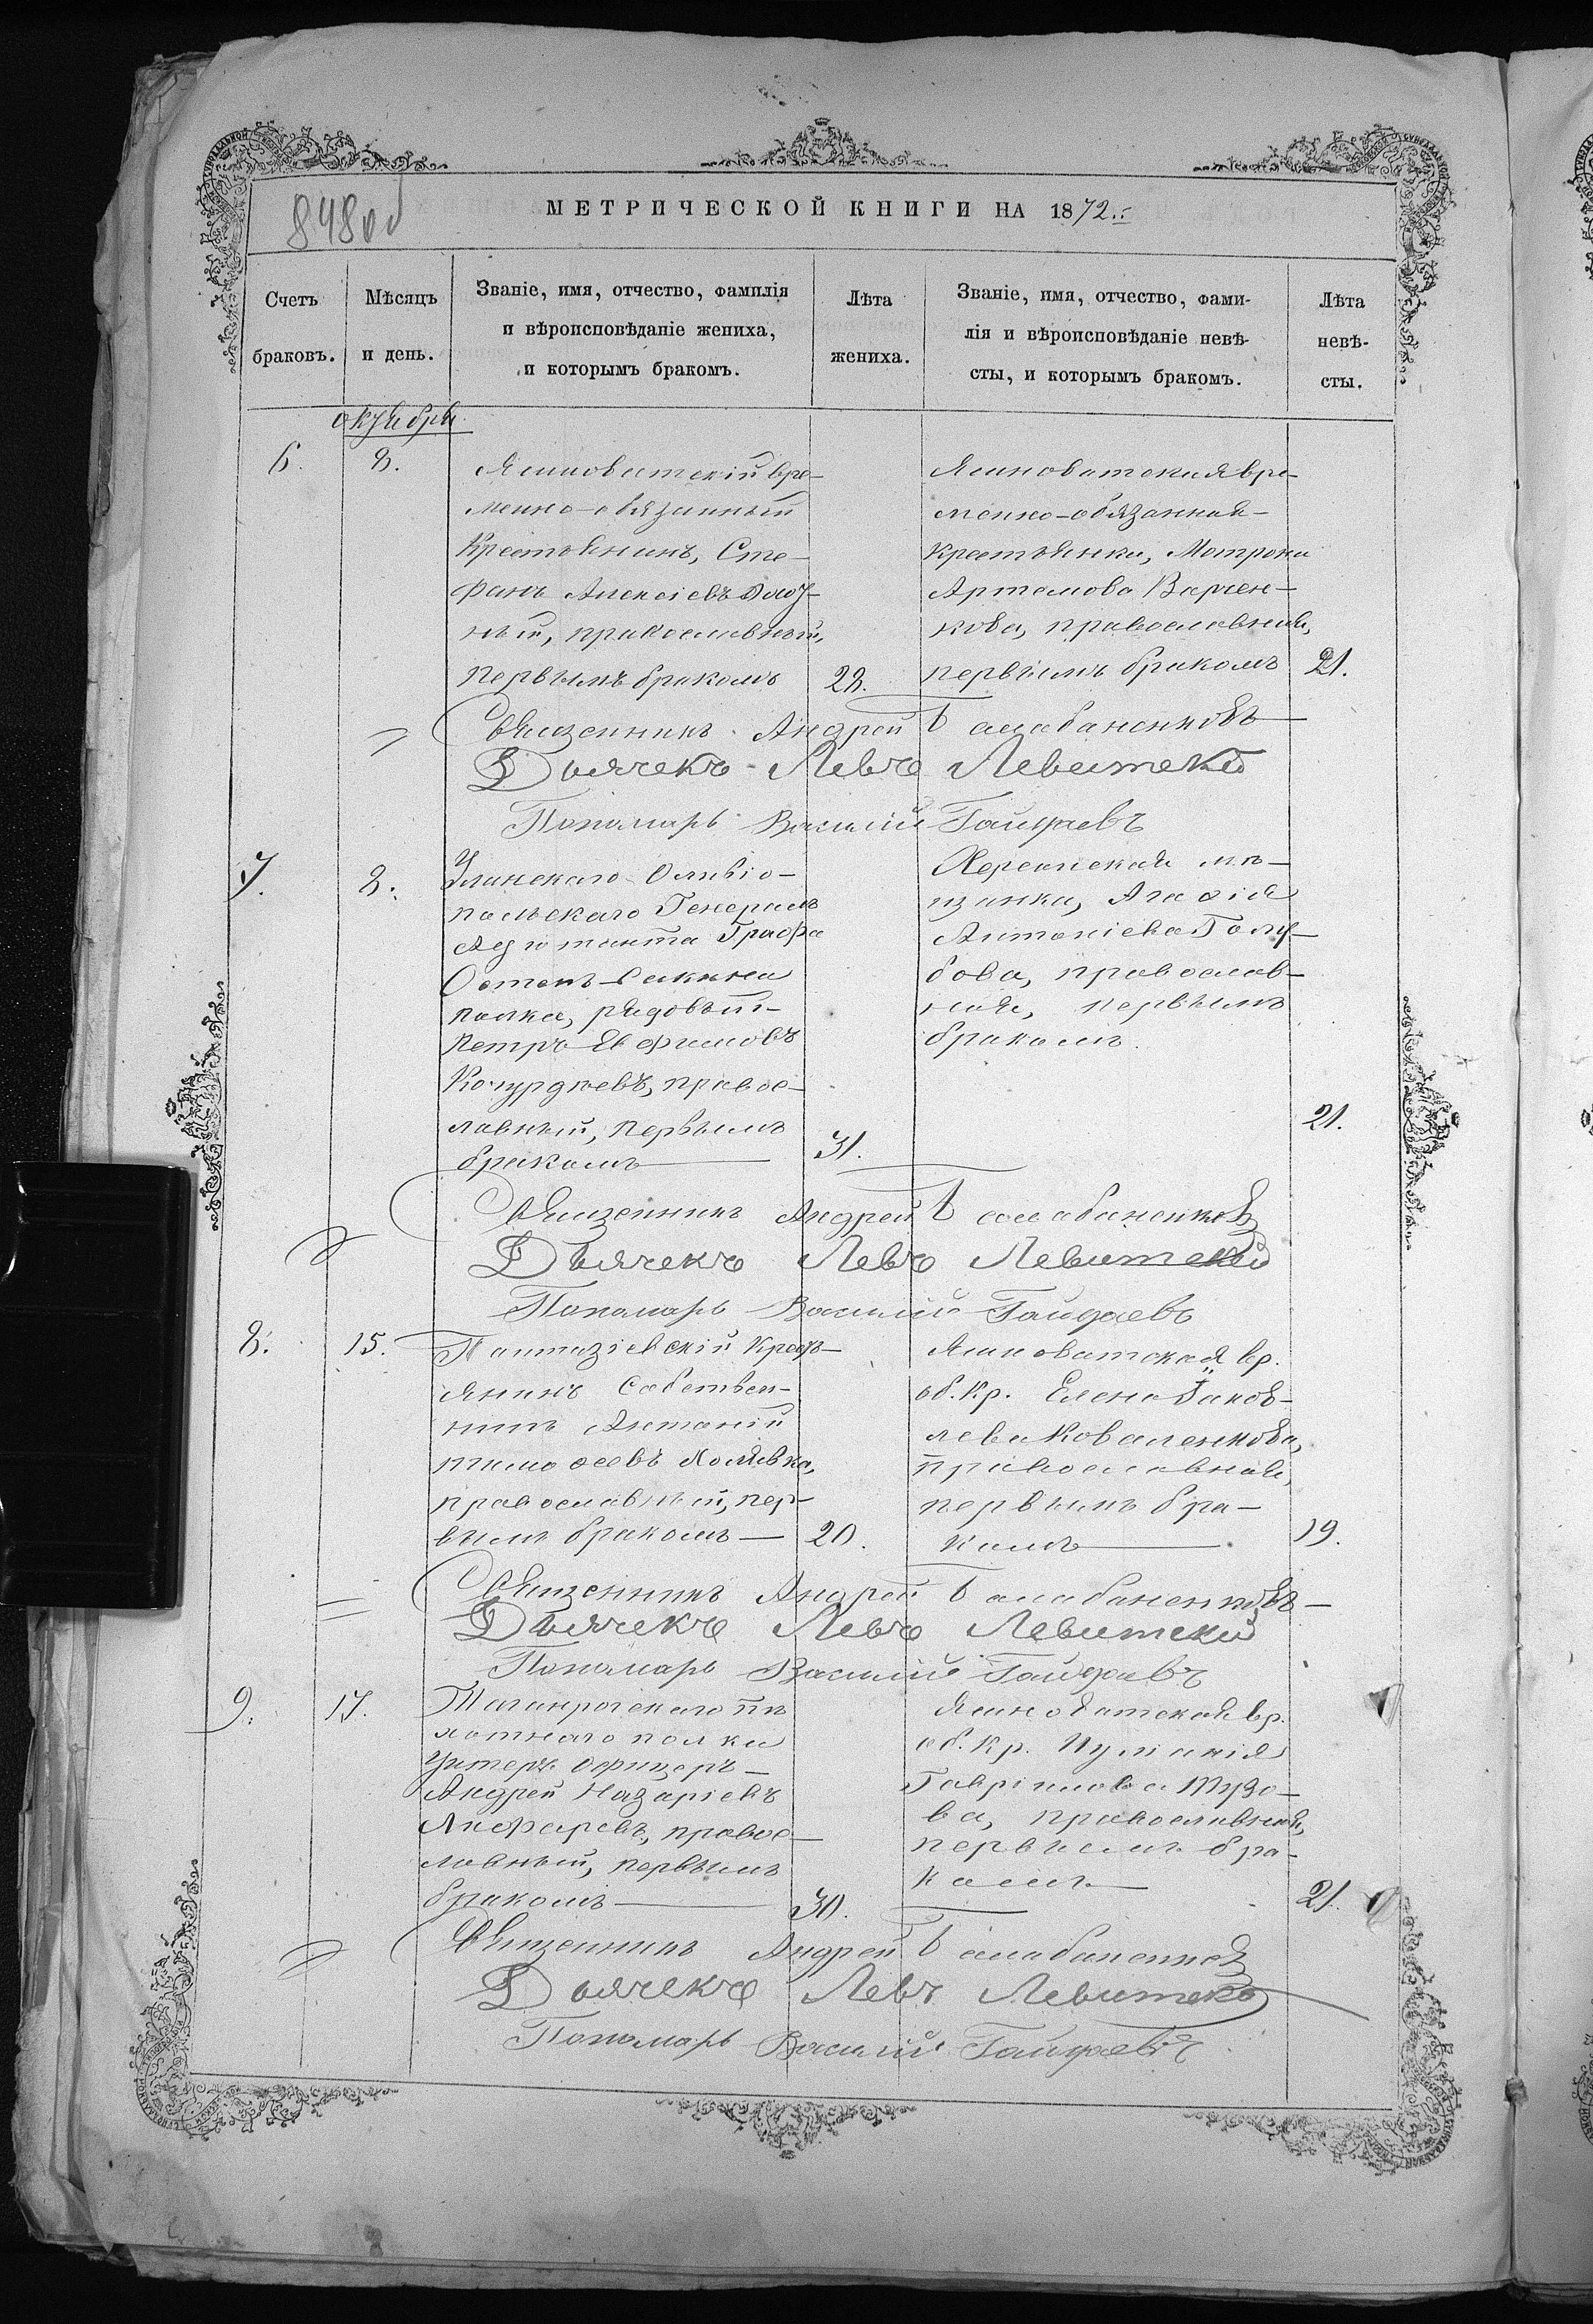 848 об
МЕТРИЧЕСКОЙ КНИГИ НА 1872 г.
Счетъ браковъ.
Мѣсяцъ и день.
Званіе, имя, отчество, фамилія
и вѣроисповѣданіе жениха,
и которымъ бракомъ.
Лѣта жениха.
Званіе, имя, отчество, фами-
лія и вѣроисповѣданіе невѣ-
сты, и которымъ бракомъ.
Лѣта невѣ-
сты.
октябрь
6. 8.
Ясиноватскій вре-
менно-обязанный
крестьянинъ, Сте-
фанъ Алексіевъ
ный, православный,
первымъ бракомъ 22.
Ясиноватская вре-
менно-обязанная
крестьянка, Матрона
Артемова Варчен-
кова, православная,
первымъ бракомъ 21.
Священникъ Андрей Балабаненковъ
Дьячекъ Левъ Левитскій
Пономарь Василій Гайдаевъ
7. 8.
Уланскаго Ольвіо-
польскаго Генералъ
Адъютанта Графа
Остенъ-Сакена
полка, рядовый
Петръ Евфимовъ
православ-
лавный, первымъ
бракомъ 31.
Херсонская мѣ-
щанка, Агафія
Антоніева Голу-
бова, православ-
ная, первымъ
бракомъ.
21.
Священникъ Андрей Балабаненковъ
Дьячекъ Левъ Левитскій
Пономарь Василій Гайдаевъ
8. 15.
Пантазіевскій крест-
янинъ собствен-
никъ Антоній
Тимофеевъ Холявка,
православный, пер-
вымъ бракомъ 20.
Ясиноватская вр.
об. кр. Елена Іаков-
лева Коваленкова,
православная,
первымъ бра-
комъ 19.
Священникъ Андрей Балабаненковъ
Дьячекъ Левъ Левитскій
Пономарь Василій Гайдаевъ
9. 17.
Таганрогскаго пѣ
хотнаго полка
Унтеръ офицеръ
Андрей Назаріевъ
правос-
лавный, первымъ
бракомъ 30.
Ясиноватская вр.
об. кр. Іуліанія
Гавріилова Тузо-
ва, православная,
первымъ бра-
комъ
21.
Священникъ Андрей Балабаненковъ
Дьячекъ Левъ Левитскій
Пономарь Василій Гайдаевъ